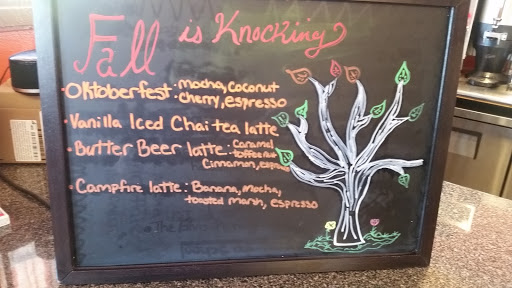 Fall is Knocking
• Oktoberfest: mocha, coconut
cherry, espresso
• Vanilla Iced Chai tea latte
• Butter Beer latte: Caramel
toffee nut
Cinnamon, espresso
• Campfire latte: Banana, Mocha,
toasted marsh, espresso
The